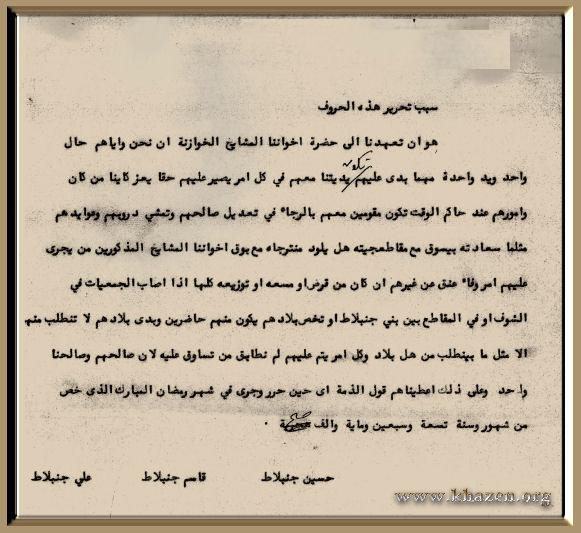 سبب تحرير هذه الحروف
هو ان تعهدنا الى حضرة اخواننا المشايخ الخوازنة ان نحن واياهم حال
واحد ويد واحدة مهما بدى عليهم تكون يديتنا معهم في كل امر يصير عليهم حقا يعز كاينا من كان
وامورهم عند حاكم الوقت تكون مقومين معهم بالرجاء في تعديل صالحهم وتمشي دروبهم وعوايدهم
مثلما سعادته بيسوق مع مقاطعجيته هل يلود منترجاه مع بوق اخواننا المشايخ المذكورين من يجرى
عليهم امر وفاء عنق عن غيرهم ان كان من قرض او مسعه او توزيعه كلها اذا اصاب الجمعيات في
الشوف او في المقاطع بين بني جنبلاط او تخص بلادهم يكون منهم حاضرين وبدى بلادهم لا تنطلب منهم
الا مثل ما بينطلب من هل بلاد وكل امر يتم عليهم لم نطابق من تساوق عليه لان صالحهم وصالحنا
واحد وعلى ذلك اعطيناهم قول الذمة اى حين حرر وجرى في شهر رمضان المبارك الذى خص
من شهور وسنة تسعة وسبعين وماية والف صح
حسين جنبلاط قاسم جنبلاط علي جنبلاط
www.khazen.org